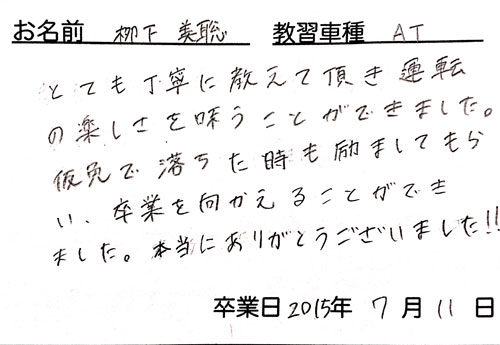 お名前 柳下 美聡 教習車種 AT
とても丁寧に教えて頂き運転
の楽しさを味うことができました。
仮免で落ちた時も励ましてもら
い、卒業を向かえることができ
ました。本当にありがとうございました!!
卒業日 2015年 7月 11日